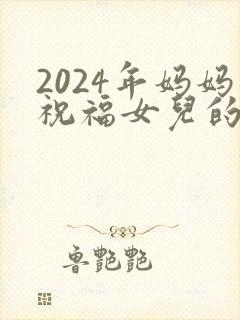 2024年妈妈
祝福女儿的
鲁艳艳